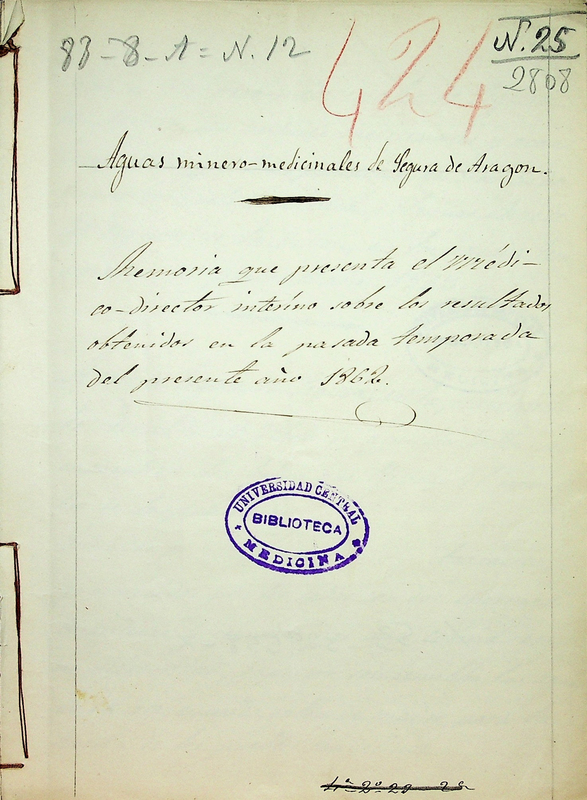 83-8-A=N.12
424
N.25
2808
Aguas minero-medicinales de Segura de Aragon.
Memoria que presenta el Médi-
co-director interino sobre los resultados
obtenidos en la pasada temporada
del presente año 1862.
UNIVERSIDAD CENTRAL
BIBLIOTECA
MEDICINA